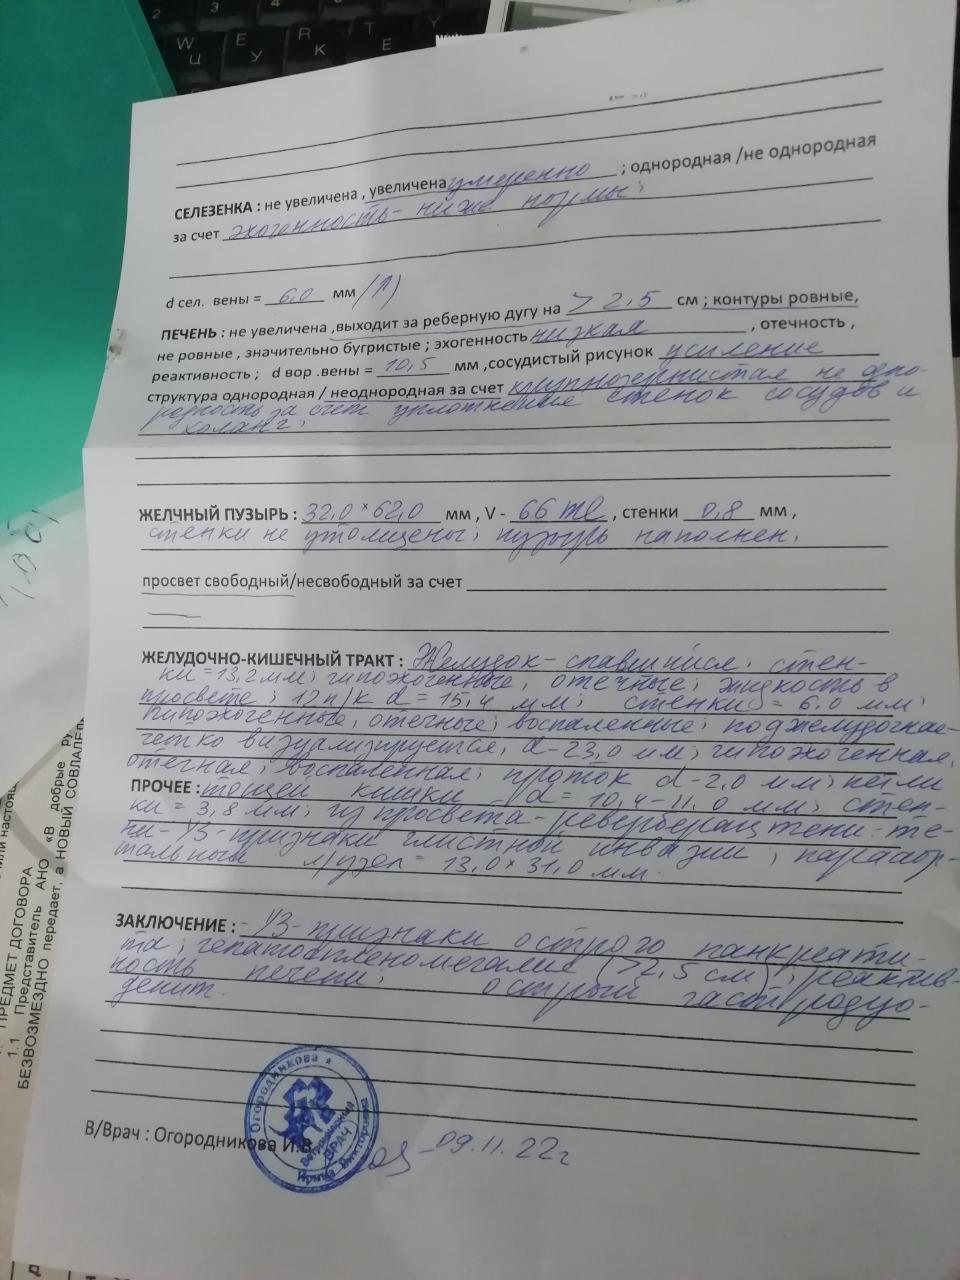 2 3 4
W E R T Y
Ц У К Е
СЕЛЕЗЕНКА : не увеличена , увеличена умеренно ; однородная /не однородная
за счет эхогенность - ниже нормы;
d сел. вены = 6,0 мм (↑)
ПЕЧЕНЬ : не увеличена ,выходит за реберную дугу на > 2,5 см ; контуры ровные,
не ровные , значительно бугристые ; эхогенность низкая , отечность ,
реактивность ; d вор .вены = 10,5 мм ,сосудистый рисунок усиление
структура однородная / неоднородная за счет крупнозернистая не одно-
родность за счет уплотнения стенок сосудов и
холанг;
ЖЕЛЧНЫЙ ПУЗЫРЬ : 32,0 × 62,0 мм , V - 66 ml , стенки 0,8 мм ,
стенки не утолщены; пузырь наполнен.
просвет свободный/несвободный за счет
—
ЖЕЛУДОЧНО-КИШЕЧНЫЙ ТРАКТ : Желудок - спавшийся; стен-
ки = 13,2 мм; гипоэхогенные, отечные; жидкость в
просвете; 12 п/к d = 15,4 мм; стенки = 6,0 мм;
гипоэхогенные, отечные; воспаленные; поджелудочная-
четко визуализируется; d - 23,0 мм; гипоэхогенная,
отечная; воспаленная; проток d - 2,0 мм; петли
ПРОЧЕЕ : тощей кишки - d = 10,4 - 11,0 мм; стен-
ки = 3,8 мм; из просвета - реверберац тени - те-
ни - УЗ - признаки глистной инвазии; парааор-
тальный л/узел = 13,0 × 31,0 мм.
ЗАКЛЮЧЕНИЕ : - УЗ - признаки острого панкреати-
та; гепатоспленомегалия (> 2,5 см); реактив-
ность печени; острый гастродуо-
денит.
В/Врач : Огородникова И.В.
09.11.22г
Огородникова
Ветеринарный
ВРАЧ
Ирина Викторовна
ПРЕДМЕТ ДОГОВОРА
1.1. Представитель АНО «В добрые ру
БЕЗВОЗМЕЗДНО передает, а НОВЫЙ СОВЛАДЕЛ